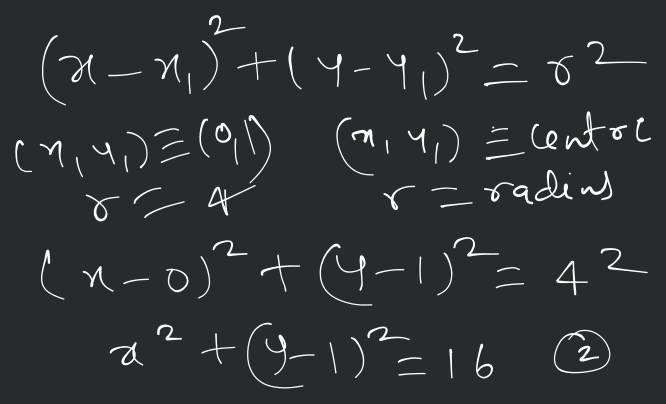 (x-x₁)²+(y-y₁)²=r²
(x₁,y₁)≡(0,1) (x₁,y₁)≡centre
r=4 r=radius
(x-0)²+(y-1)²=4²
x²+(y-1)²=16 ②